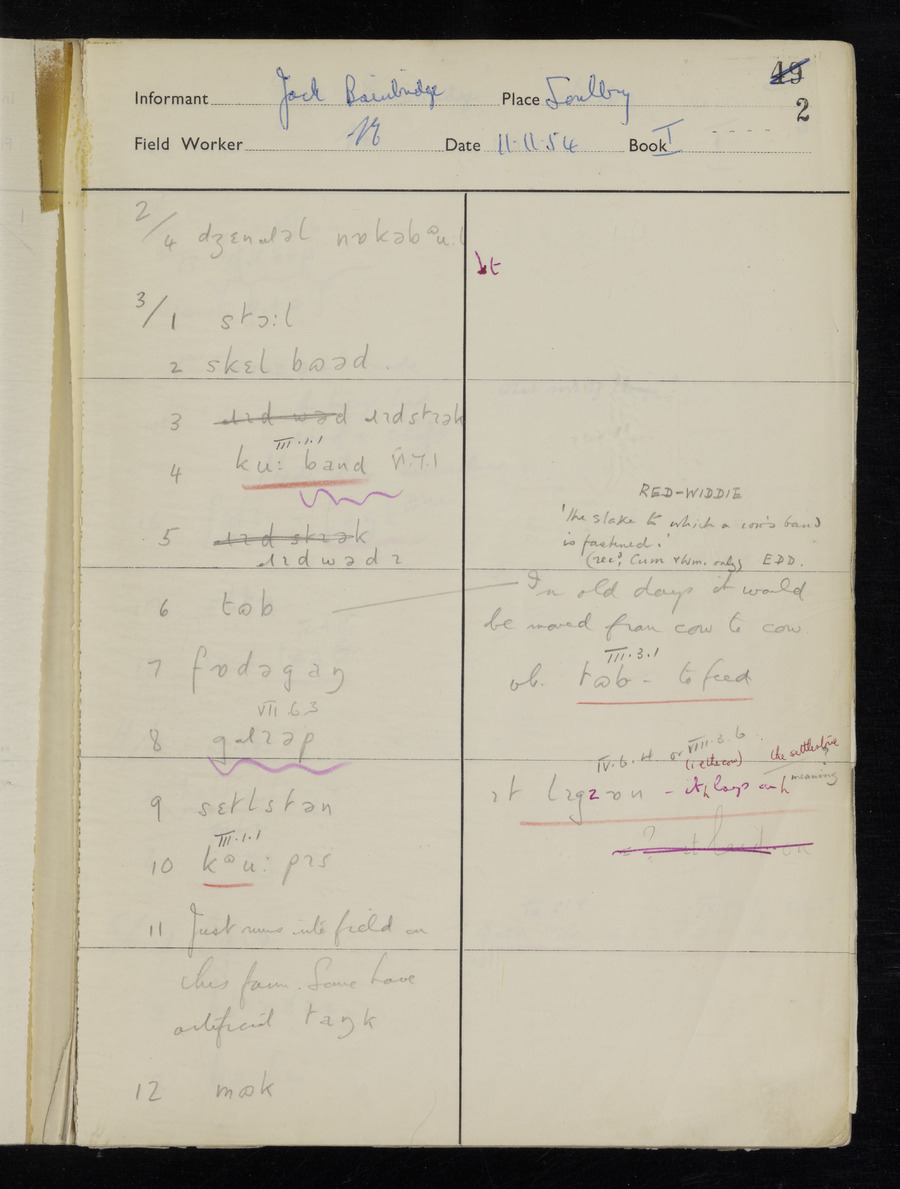 49
2
Informant Jack Bainbridge Place Soulby
Field Worker Date 11.11.54 Book I
2/4 dʒɛnɹəl nɒkəbəu:t
3/1 stə:l
2 skɛl bʊəd
3 ɹɪd wəd ɹɪdstɪək
III.1.1
4 ku: band VI.7.1
5 ɹɪd stɪək
ɹɪdwədɪ
6 tʊb
7 fɒdəgaŋ
VII.6.3
8 gɹɪəp
9 sɛtlstən
III.1.1
10 kəu: pɪs
11 Just runs into field on
this farm. Some have
artificial taŋk
12 mʊk
RED-WIDDIE
'the stake to which a cow's band
is fastened.'
(rec. Cum & Wm. only) EDD.
In old days it would
be moved from cow to cow
III.3.1
ob. tʊb - to feed
IV.6.4 or VIII.3.6
(i.e. the cow) the settlestone
ɪt lɪgz ɒn - it lays on meaning